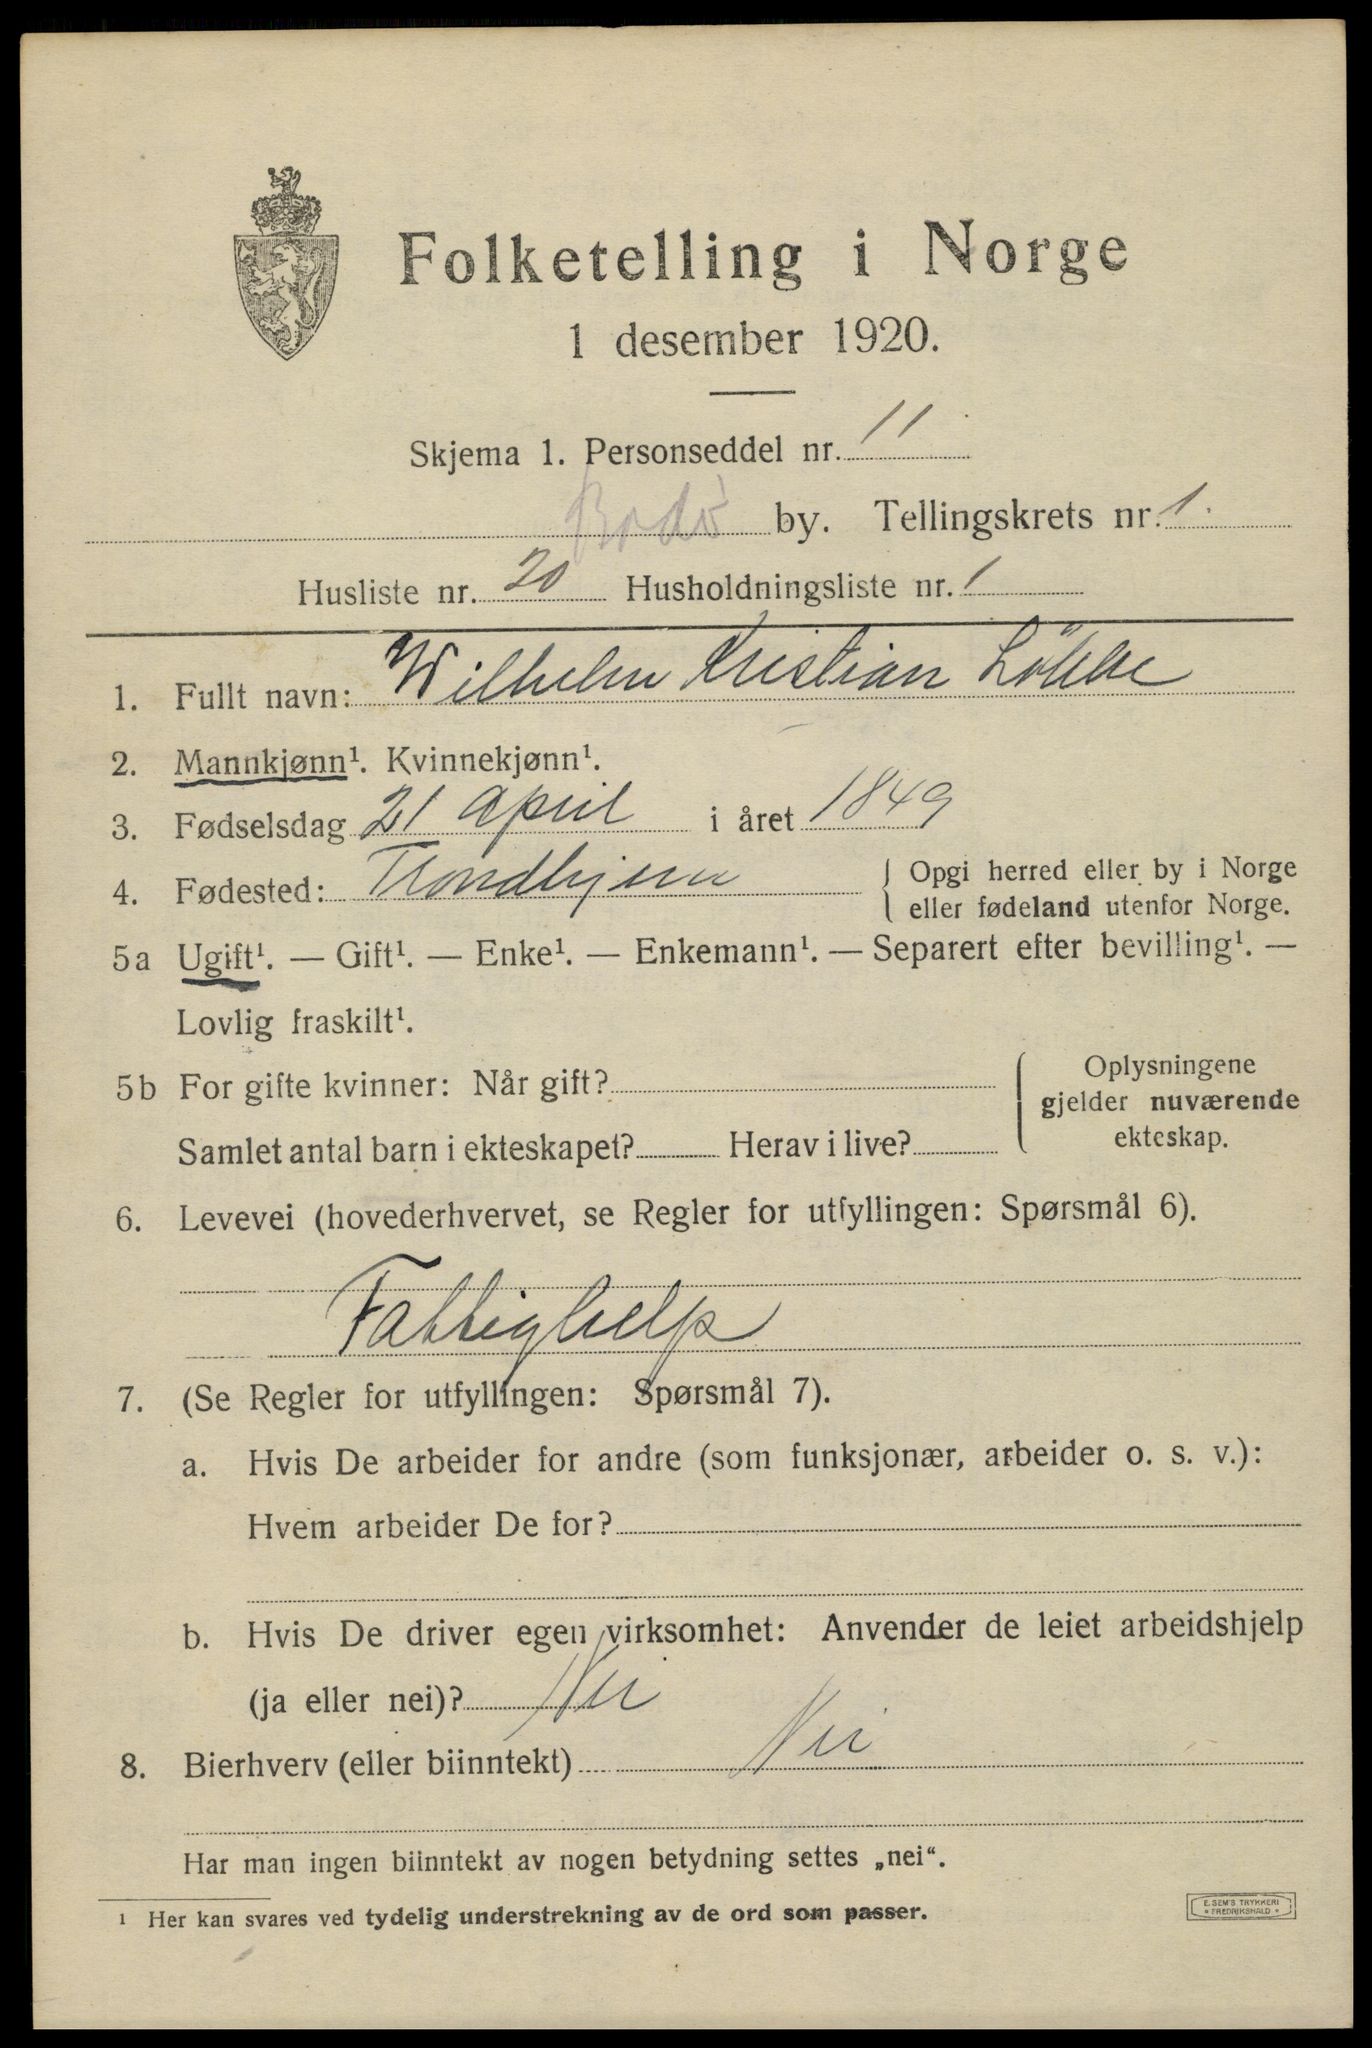 Folketelling i Norge
1 desember 1920.
Skjema 1. Personseddel nr. 11
Bodø by. Tellingskrets nr. 1.
Husliste nr. 20 Husholdningsliste nr. 1
1. Fullt navn: Wilhelm Kristian Løkke
2. Mannkjønn¹. Kvinnekjønn¹.
3. Fødselsdag 21 april i året 1849
4. Fødested: Trondhjem { Opgi herred eller by i Norge
eller fødeland utenfor Norge.
5a Ugift¹. — Gift¹. — Enke¹. — Enkemann¹. — Separert efter bevilling¹. —
Lovlig fraskilt¹.
5b For gifte kvinner: Når gift? { Oplysningene
gjelder nuværende
Samlet antal barn i ekteskapet? Herav i live? ekteskap.
6. Levevei (hovederhvervet, se Regler for utfyllingen: Spørsmål 6).
Fattighelp
7. (Se Regler for utfyllingen: Spørsmål 7).
a. Hvis De arbeider for andre (som funksjonær, arbeider o. s. v.):
Hvem arbeider De for?
b. Hvis De driver egen virksomhet: Anvender de leiet arbeidshjelp
(ja eller nei)? Nei
8. Bierhverv (eller biinntekt) Nei
Har man ingen biinntekt av nogen betydning settes „nei“.
¹ Her kan svares ved tydelig understrekning av de ord som passer.
E. SEM'S TRYKKERI
* FREDRIKSHALD *